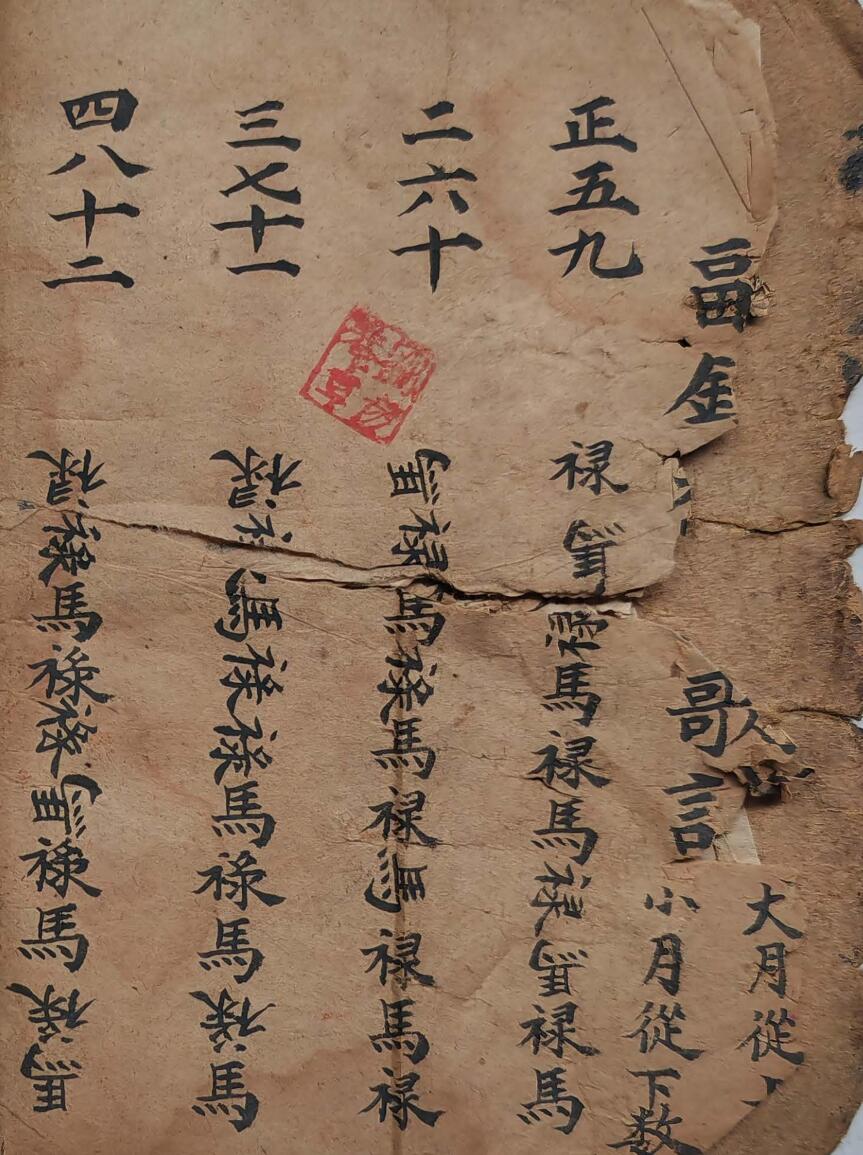 大月從
金
歌
小月從下数
正五九
禄馬禄馬禄馬禄馬禄馬
二六十
馬禄馬禄馬禄馬禄馬禄
三七十一
禄禄馬禄禄馬禄馬禄馬
四八十二
禄禄馬禄禄馬禄馬禄馬